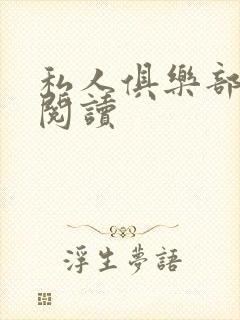 私人俱樂部
閱讀
浮生夢語